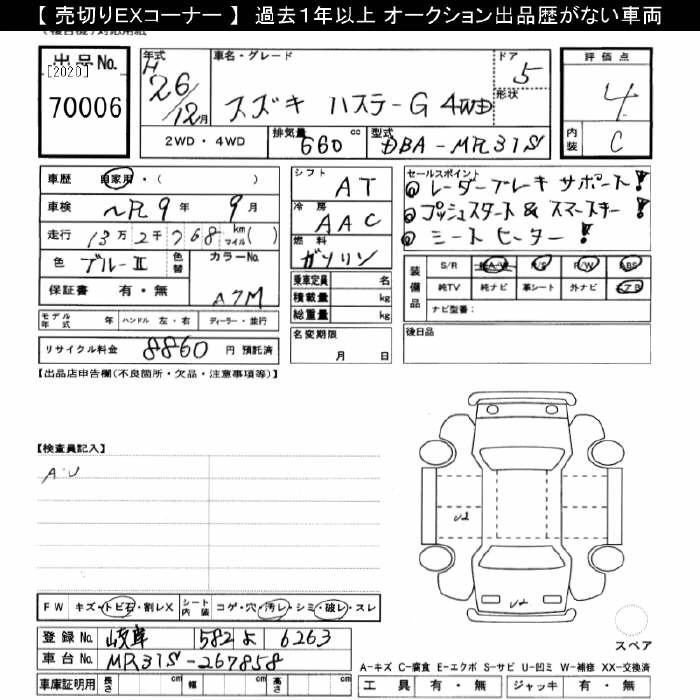 【 売切りEXコーナー 】 過去1年以上 オークション出品歴がない車両
出品No. [2020] 70006
年式 H26/12月
車名・グレード スズキ ハスラーG 4WD
ドア 5 形状
評価点 4
内装 C
2WD・4WD 排気量 660 cc 型式 DBA-MR31S
車歴 自家用・( )
車検 ～R9年 9月
走行 13万2千768 km マイル ( )
色 ブルーII 色替 カラーNo. A7M
保証書 有・無
モデル年式 年 ハンドル 左・右 ディーラー・並行
リサイクル料金 8860 円 預託済
シフト AT
冷房 AAC
燃料 ガソリン
乗車定員 名
積載量 kg
総重量 kg
名変期限 月 日
セールスポイント
レーダーブレーキサポート!
プッシュスタート&スマートキー!
シートヒーター!
装備品 S/R A・W P/S P/W ABS
純TV 純ナビ 革シート 外ナビ エアB
ナビ型番:
後日品
【出品店申告欄(不良箇所・欠品・注意事項等)】
【検査員記入】
A・U
U2
U2
スペア
FW キズ・トビ石・割レX シート内装 コゲ・穴・汚レ・シミ・破レ・スレ
登録No. 岐阜 582 よ 6263
車台No. MR31S-267858
車庫証明用 長さ cm 幅 cm 高さ cm
A-キズ C-腐食 E-エクボ S-サビ U-凹ミ W-補修 XX-交換済
工具 有・無 ジャッキ 有・無